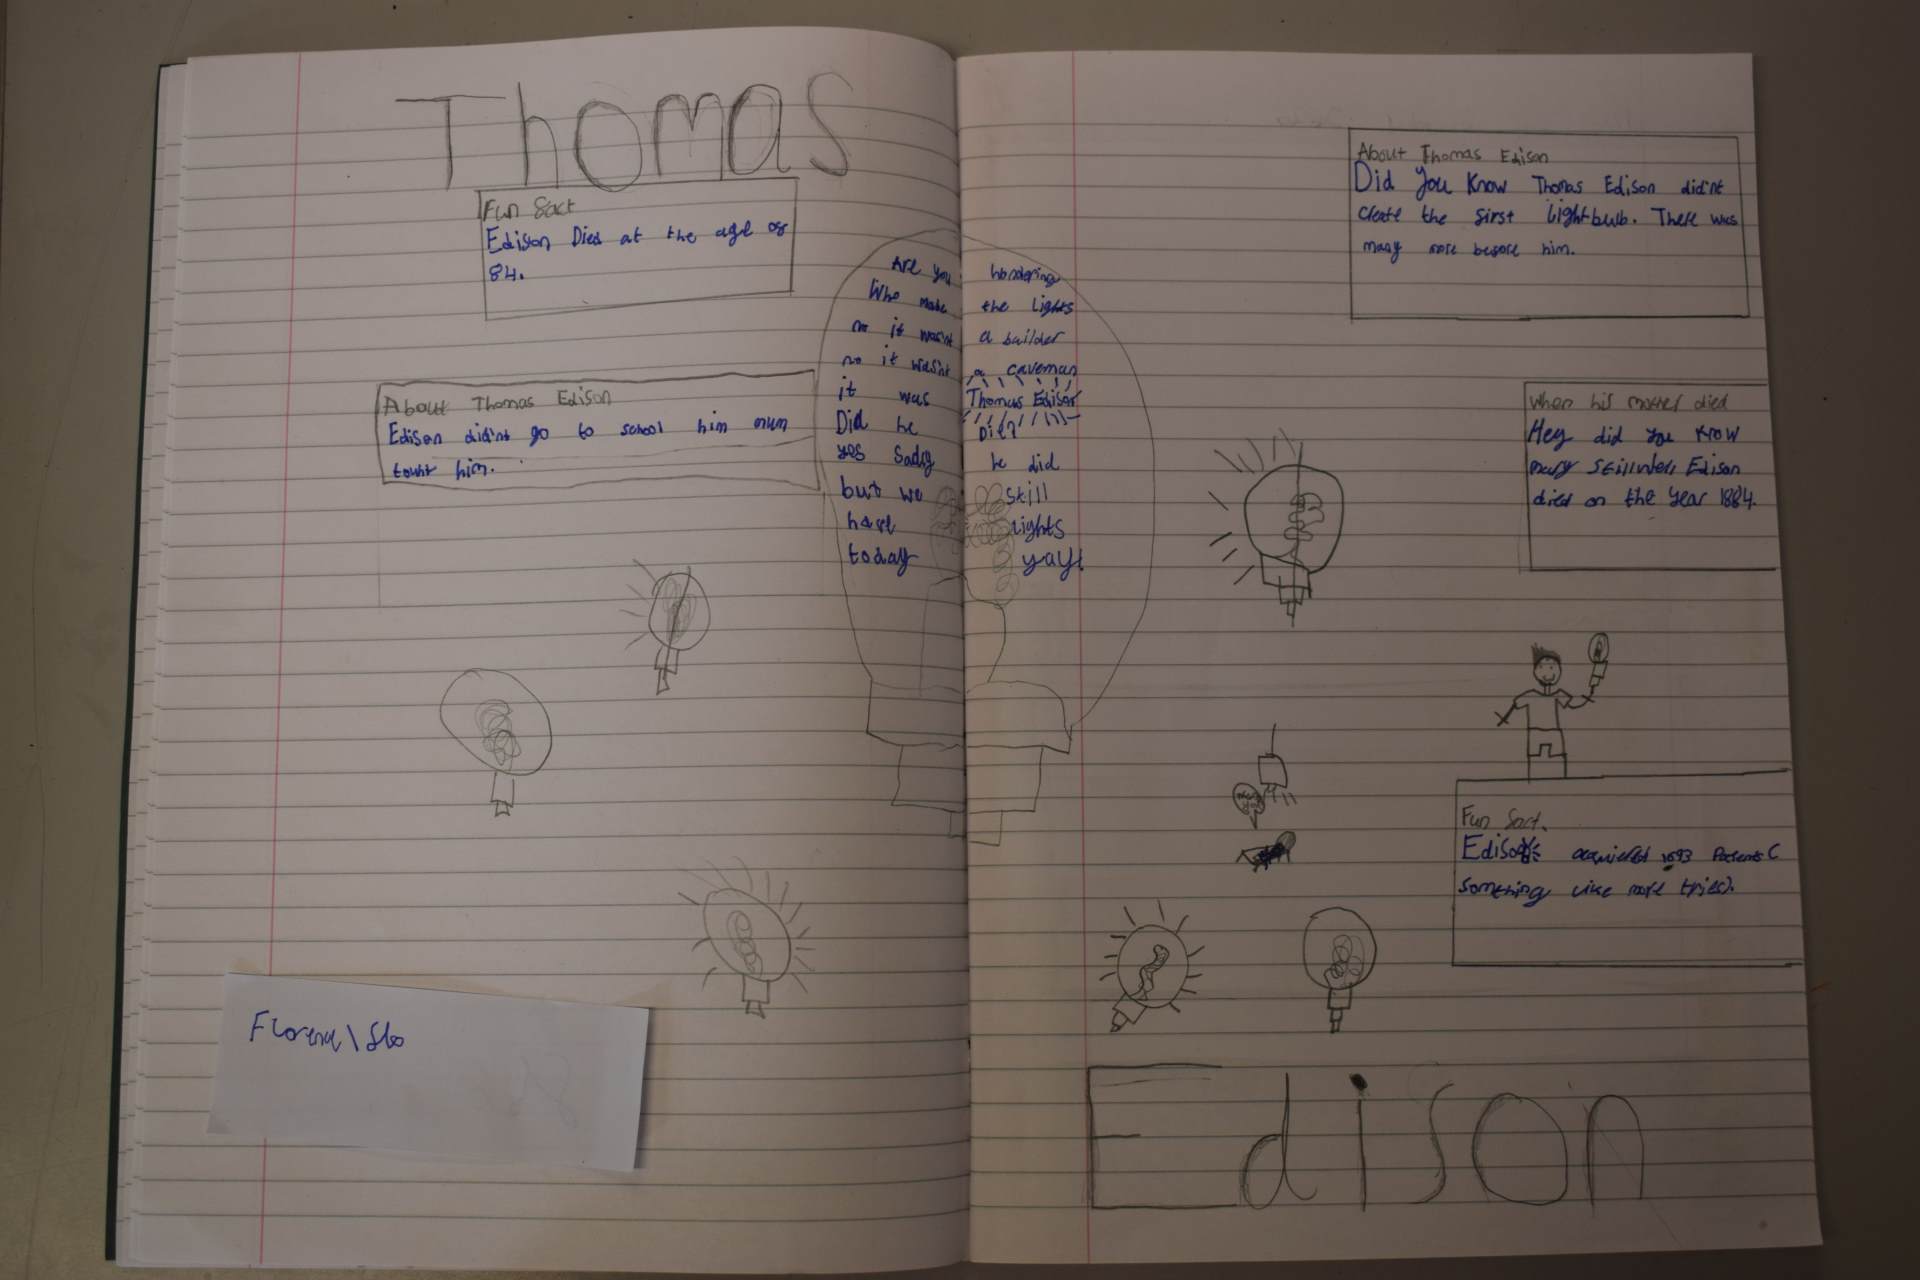 Thomas
Fun fact
Edison Died at the age of
84.
About Thomas Edison
Edison didint go to school him mum
tout him.
Are you wondering
Who made the lights
no it wasint a builder
no it wasint a caveman
it was Thomas Edison
Did he Die?
yes sadly he did
but we still
have lights
today yay!
About Thomas Edison
Did you know Thomas Edison didint
create the first lightbulb. There was
many more before him.
When his mother died
Hey did you know
mary Stillwell Edison
died on the year 1884.
Fun fact.
Edison acquiered 1093 Patents (
something like more tries).
Florence\flo
Edison